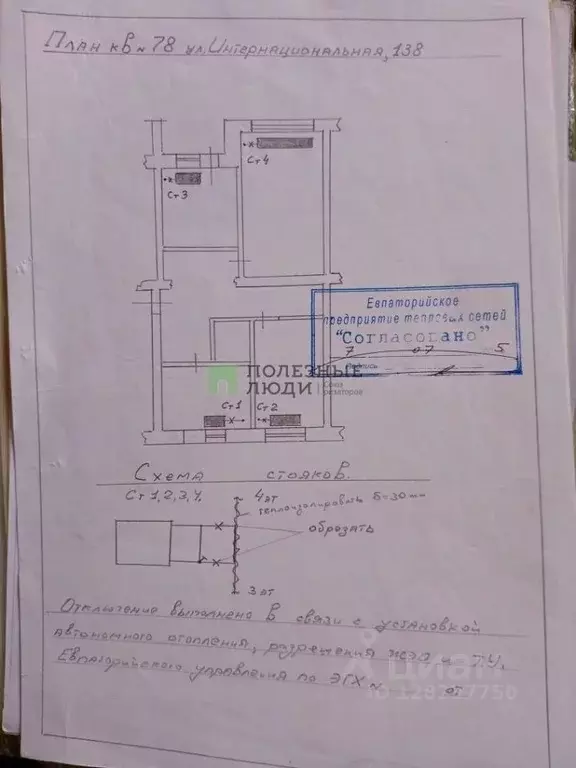 План кв № 78 ул. Интернациональная, 138
Ст4
Ст3
Евпаторийское
предприятие тепловых сетей
"Согласовано"
7 07 5
ПОЛЕЗНЫЕ
ЛЮДИ
Союз
риэлторов
Ст1
Ст2
Схема стояков.
Ст 1,2,3,4
4 эт
теплоизолировать δ=30мм
обрезать
3 эт
Отключение выполнено в связи с установкой
автономного отопления, разрешения и
Евпаторийского управления по ЭГХ № от
циан